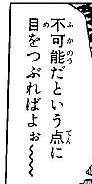 不可能だという点に
目をつぶればよぉ〜〜〜